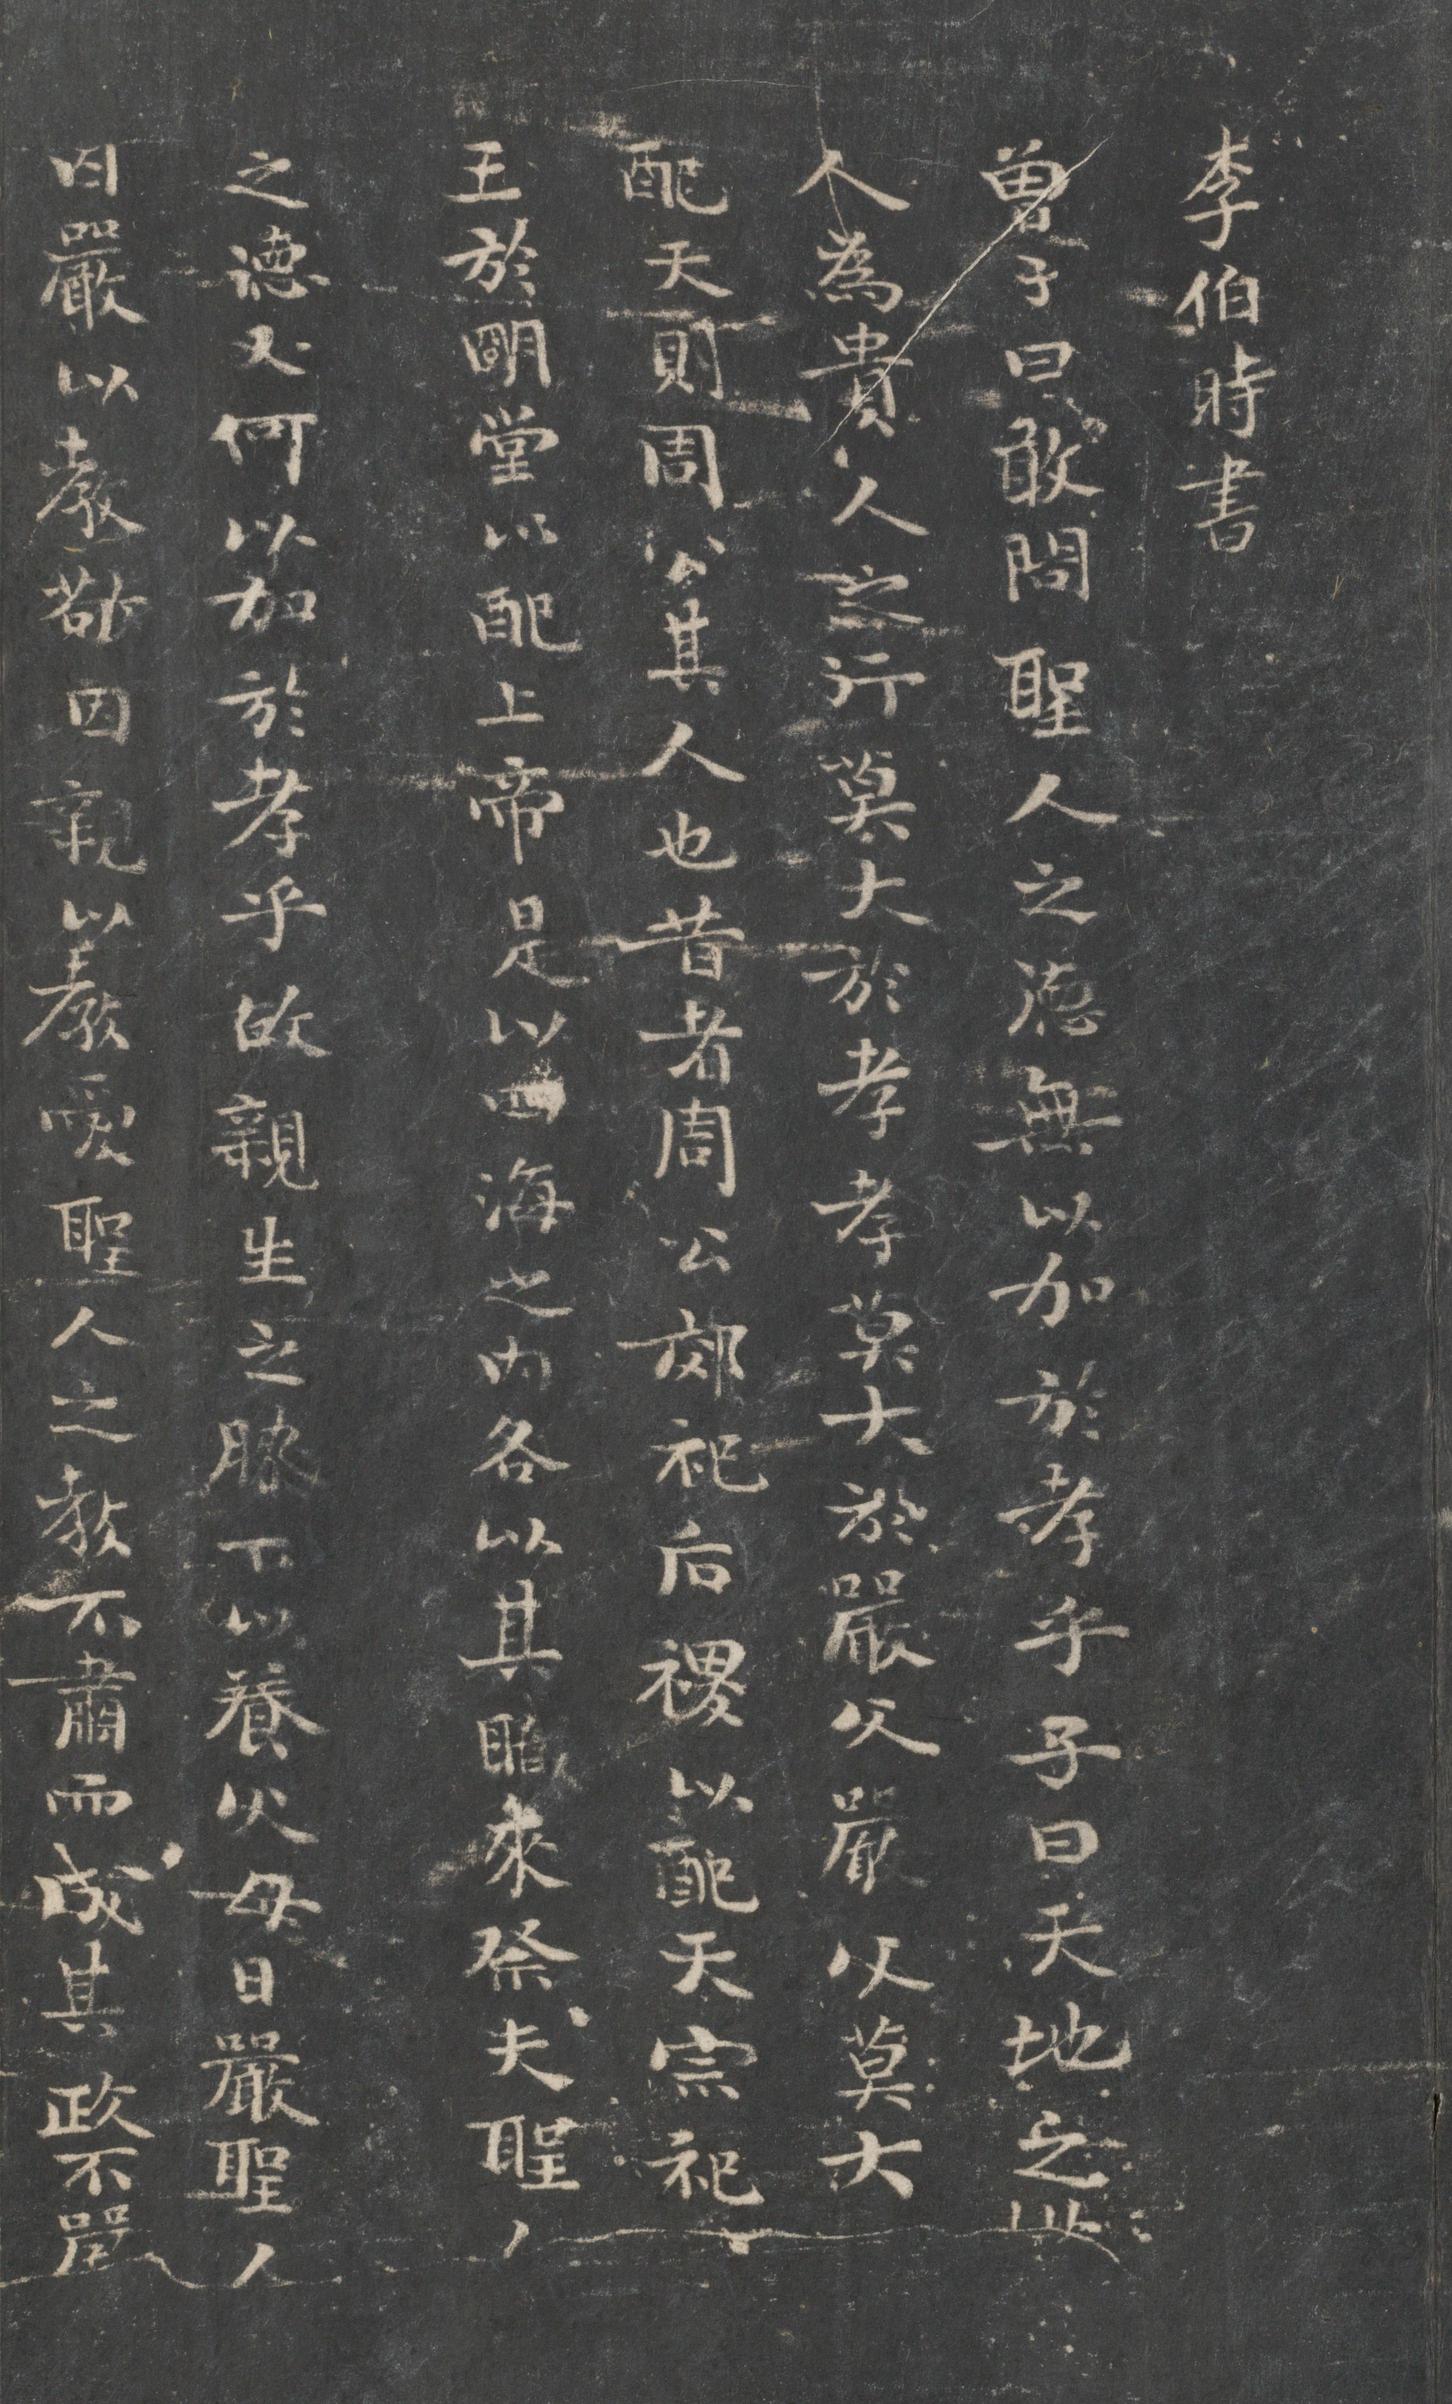 李伯時書
曾子曰敢問聖人之德無以加於孝乎子曰天地之
人為貴人之行莫大於孝孝莫大於嚴父嚴父莫大
配天則周公其人也昔者周公郊祀后禝以配天宗祀
王於朙堂以配上帝是以四海之內各以其職來祭夫聖
之德又何以加於孝乎故親生之膝下以養父母日嚴聖人
因嚴以教敬因親以教愛聖人之教不肅而成其政不嚴